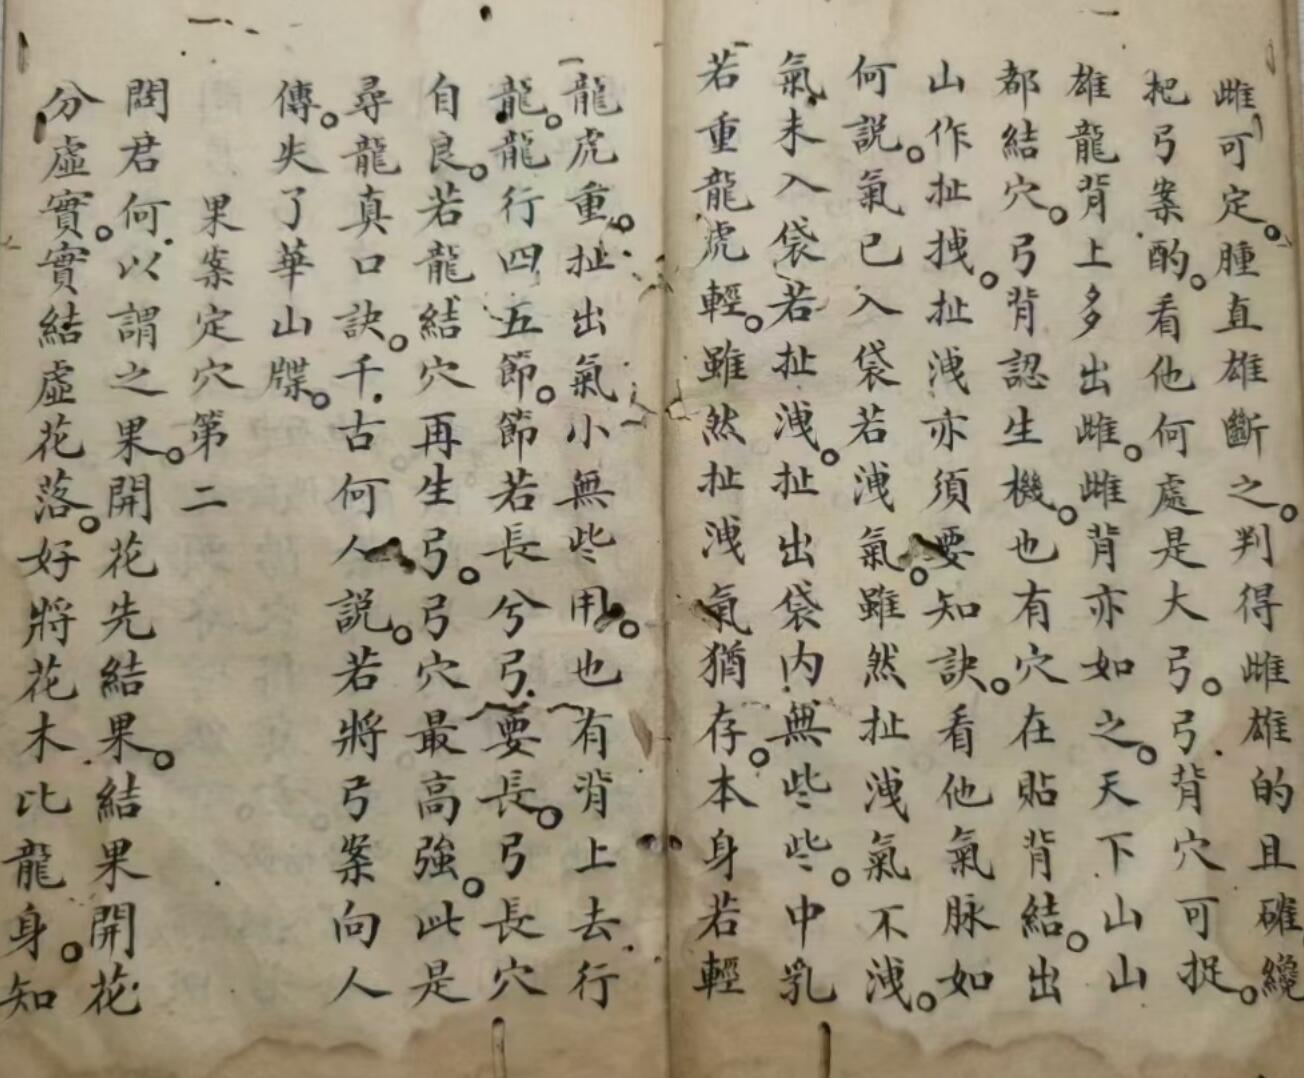 雌可定。腫直雄斷之。判得雌雄的且確纔
把弓案酌。看他何處是大弓。弓背穴可捉。
雄龍背上多出雌。雌背亦如之。天下山山
都結穴。弓背認生機。也有穴在貼背結。出
山作扯拽。扯洩亦須要知訣。看他氣脉如
何説。氣已入袋若洩氣。雖然扯洩氣不洩。
氣未入袋若扯洩。扯出袋内無些些。中乳
若重龍虎輕。雖然扯洩氣猶存。本身若輕
龍虎重。扯出氣小無些用。也有背上去行
龍。龍行四五節。節若長兮弓要長。弓長穴
自良。若龍結穴再生弓。弓穴最高強。此是
尋龍真口訣。千古何人説。若將弓案向人
傳。失了華山牒。
果案定穴第二
問君何以謂之果。開花先結果。結果開花
分虛實。實結虛花落。好將花木比龍身。知